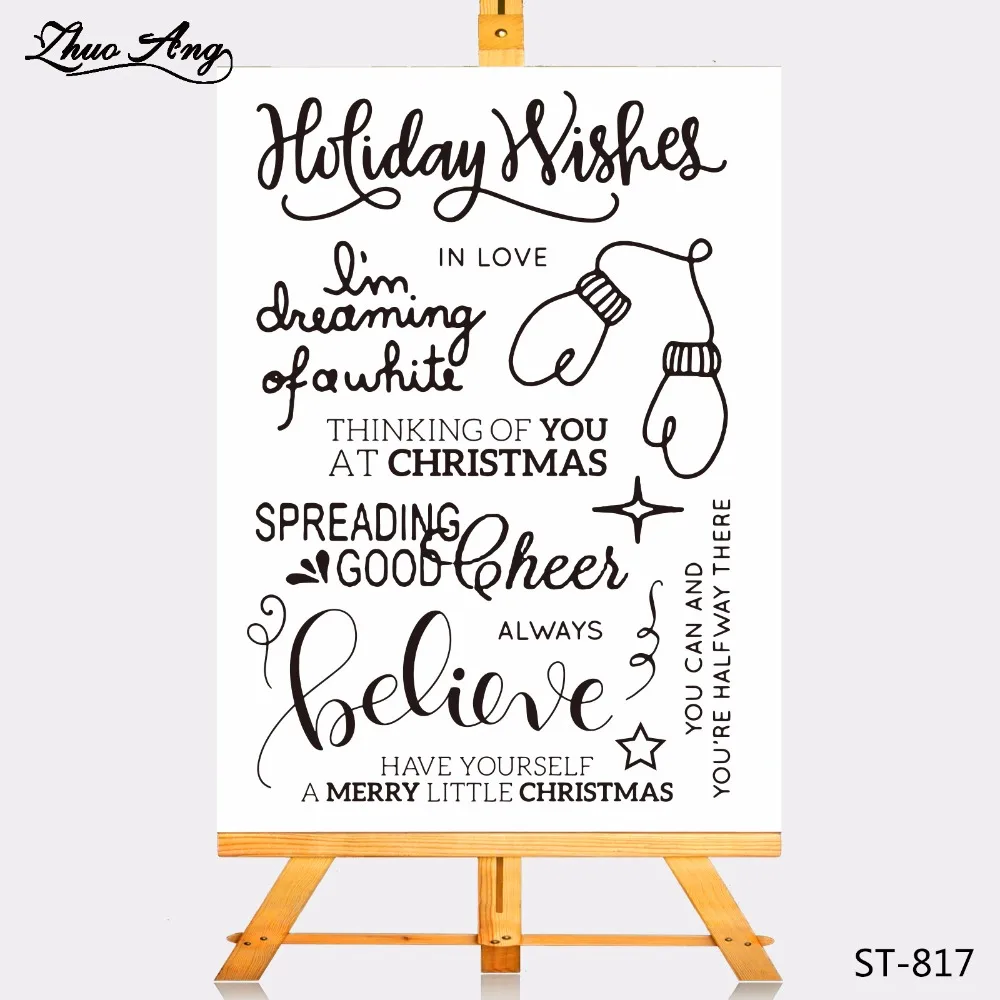 Zhuo Ang
Holiday Wishes
IN LOVE
I'm
dreaming
of a white
THINKING OF YOU
AT CHRISTMAS
SPREADING
GOOD Cheer
ALWAYS
believe
YOU CAN AND
YOU'RE HALFWAY THERE
HAVE YOURSELF
A MERRY LITTLE CHRISTMAS
ST-817